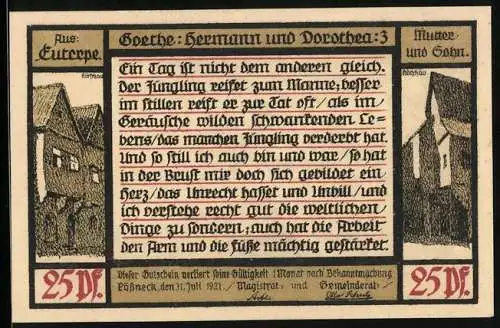 Aus:
Euterpe.
Goethe: Hermann und Dorothea: 3
Mutter
und Sohn.
Ein Tag ist nicht dem anderen gleich.
Der Jüngling reifet zum Manne; besser
im stillen reift er zur Tat oft / als im
Geräusche wilden schwankenden Le=
bens / das manchen Jüngling verderbt hat.
Und so still ich auch bin und war / so hat
in der Brust mir doch sich gebildet ein
Herz / das Unrecht hasset und Unbill / und
ich verstehe recht gut die weltlichen
Dinge zu sondern; auch hat die Arbeit
den Arm und die Füße mächtig gestärket.
25 Pf.
Dieser Gutschein verliert seine Gültigkeit 1 Monat nach Bekanntmachung
Pößneck, den 31. Juli 1921. Magistrat= und Gemeinderat:
25 Pf.